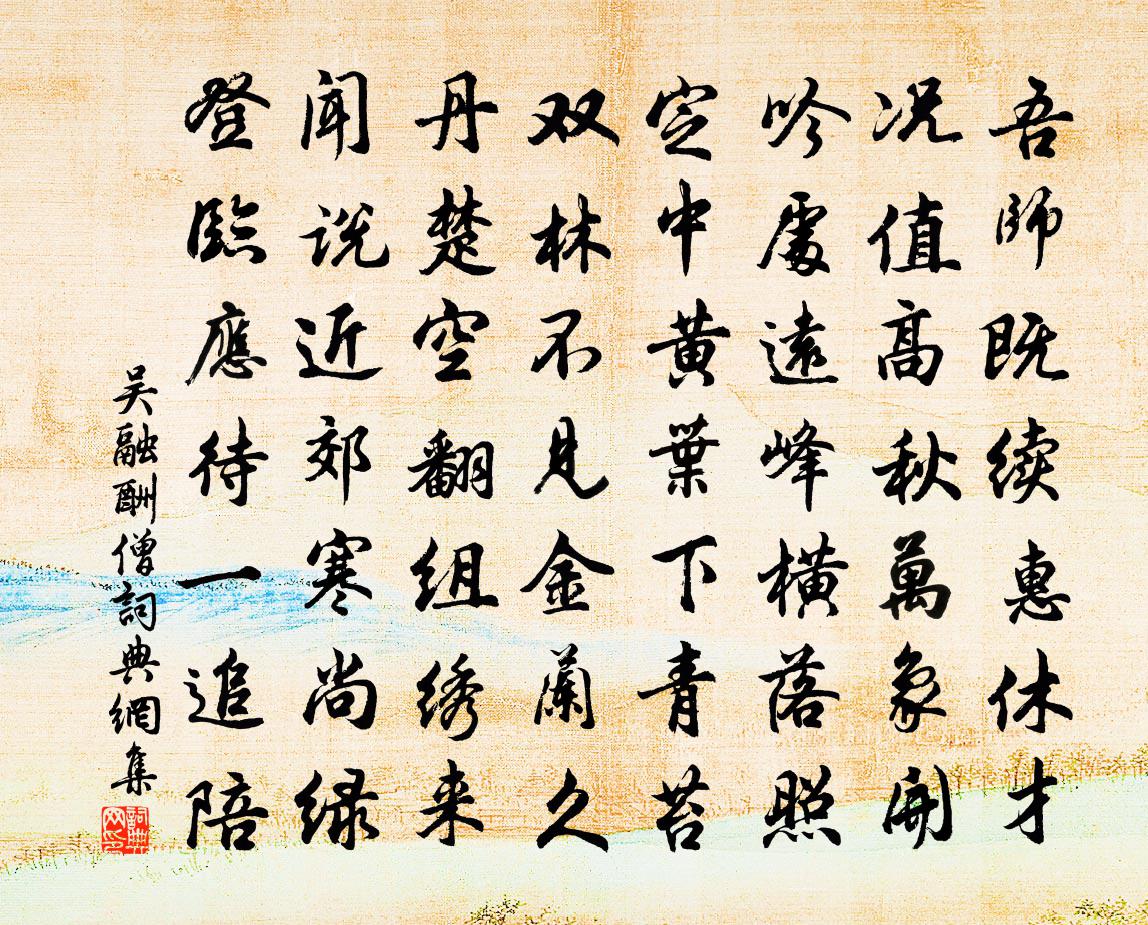 吾師既续惠休才
况值高秋萬象開
吟處遠峰橫落照
定中黄葉下青苔
双林不見金蘭久
丹楚空翻组绣来
闻说近郊寒尚绿
登臨應待一追陪
吴融酬僧詞典網集
詞典网印